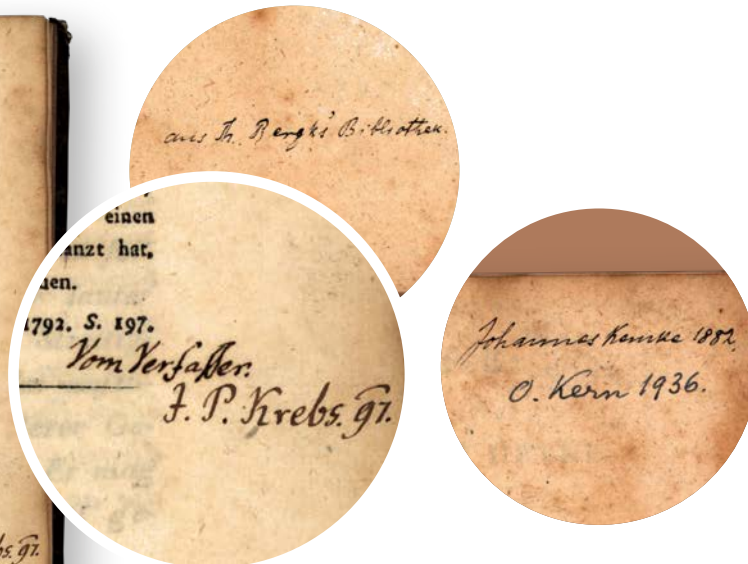 aus Th. Bergk's Bibliothek.
einen
anzt hat,
uen.
1792. S. 197.
Vom Verfasser.
J. P. Krebs. 97.
Johannes Kemke 1882.
O. Kern 1936.
bs. 97.